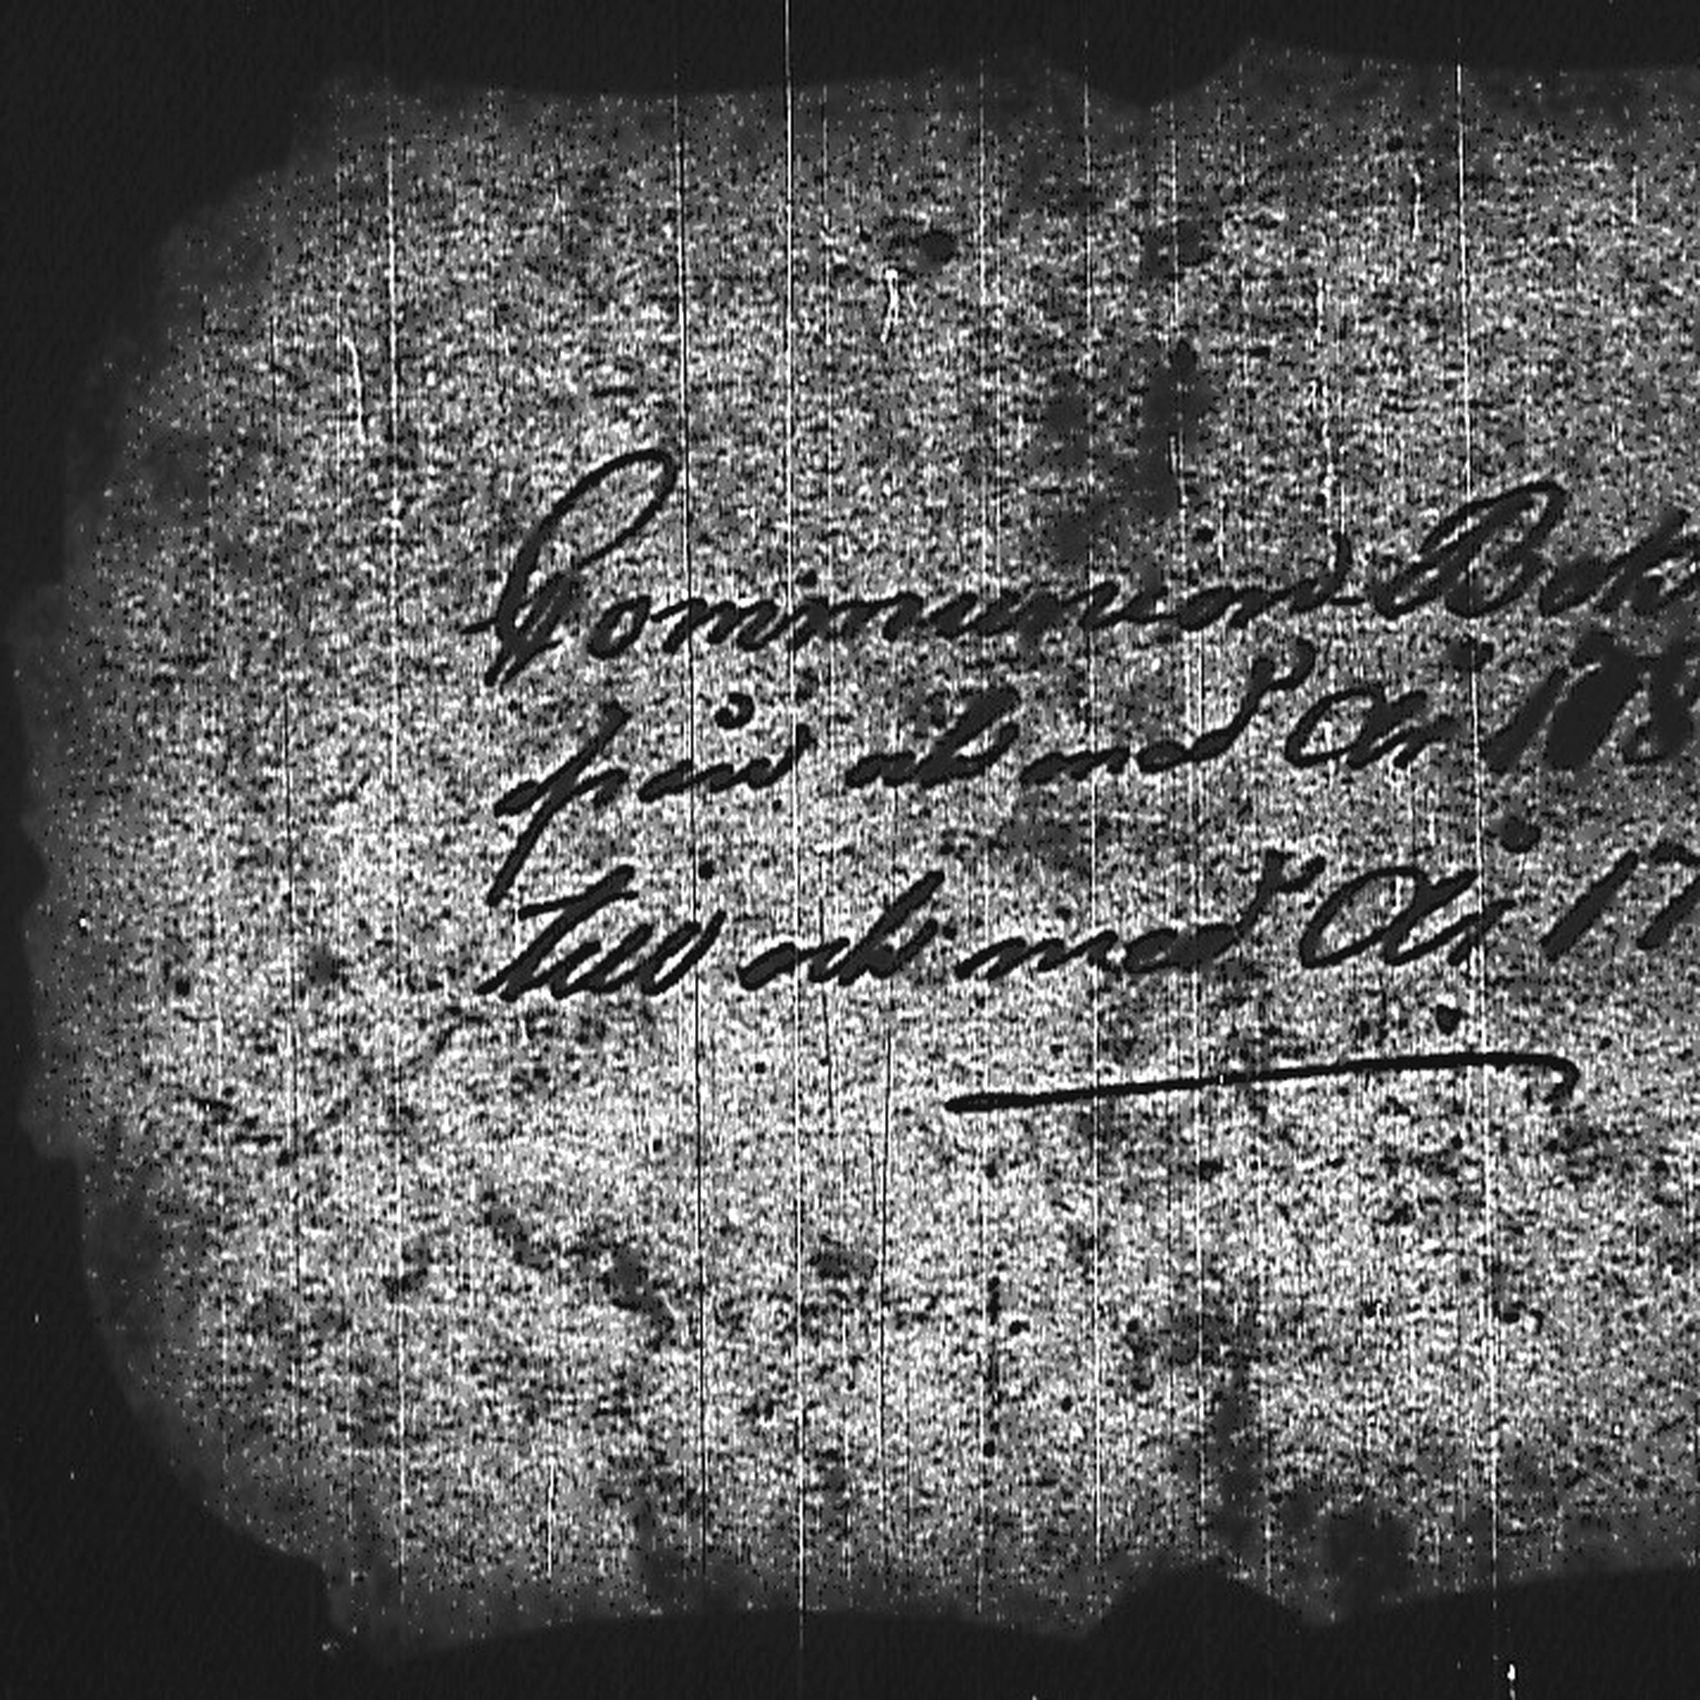 Communion Bok
från och med År 178
till och med År 17